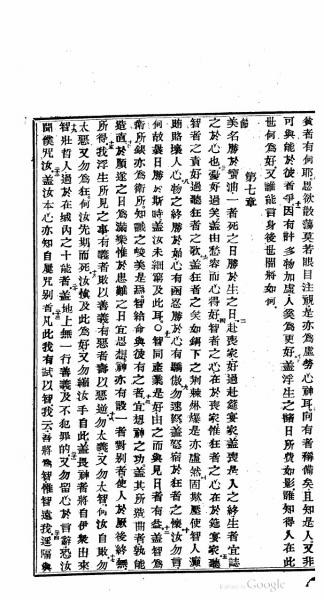 貧者有何耶愚欲散蕩莫若眼目注視是亦為虛勞心神耳向有者稱備矣且知是人又非
可與能於彼者爭因有許多物加虛人奚為更好蓋浮生之諸日所費如影雖知得人在此
世何為好又誰能言身後世間將如何
第七章
美名勝於寶油一者死之日勝於生之日赴喪家好過赴筵宴家蓋喪是人之終生者宜誌
之於心也憂好過笑蓋由愁容而心得好智者之心在於喪家惟狂者之心在於筵宴家聽
智者之責好過聽狂者之歌蓋狂者之笑如鍋下之荊棘爆是亦虛然固欺壓使智人癲
賄賂壞人心物之終勝於始心有函忍勝於心有驕傲勿速怒蓋怒宿於狂者之懷汝勿言
何故曩日勝於斯時蓋汝未細窮及此耳智同產業是好由之而與見日者有益蓋智為
衛所銀亦為衛所知識之峻美是為智給命與彼有之者宜想神之功蓋其所造曲者孰能
造直於順遂之日為讌樂惟於患難之日宜思想神亦有設一者對別者使人於厥後終無
所得我浮生所見之事有義者敗以善義有惡者壽以惡逆勿太義又勿太智何汝自敗勿
太惡又勿為狂何汝先期而死汝執及此為好又勿縮汝手自此蓋畏神者將自伊衆出來
智壯哲人過於在城內之十能者蓋地上無一行善義及不犯罪的又勿留心於言辭恐汝
聞僕咒汝蓋汝本心亦知自屢咒別者凡此我有試以智我云吾將為智惟智遠我遥隔與
Google